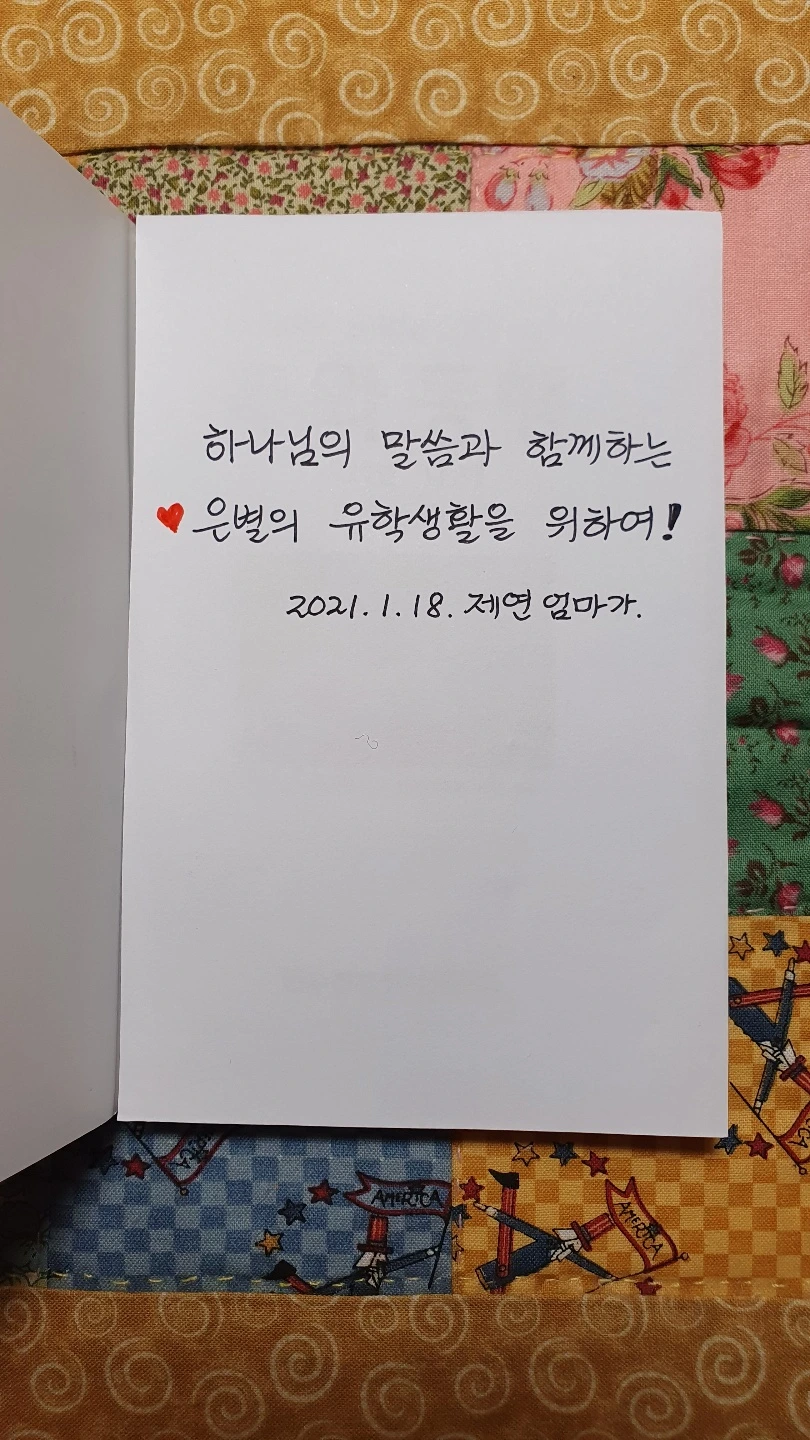 하나님의 말씀과 함께하는
♥ 은별의 유학생활을 위하여!
2021. 1. 18. 제연 엄마가.
AMERICA
AMERICA